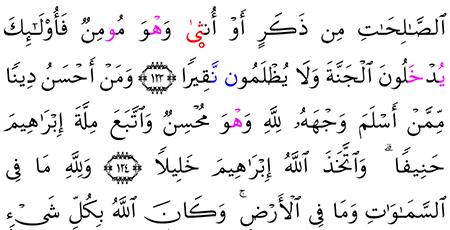 اَ۬لصَّٰلِحَٰتِ مِن ذَكَرٍ أَوْ أُنثىٰ وَهْوَ مُومِنٌ فَأُوْلَٰٓئِكَ
يُدْخَلُونَ اَ۬لْجَنَّةَ وَلَا يُظْلَمُونَ نَّقِيرًا ١٢٣ وَمَنْ أَحْسَنُ دِينًا
مِّمَّنْ أَسْلَمَ وَجْهَهُۥ لِلَّهِ وَهْوَ مُحْسِنٌ وَاتَّبَعَ مِلَّةَ إِبْرَٰهِيمَ
حَنِيفًاۗ وَاتَّخَذَ اَ۬للَّهُ إِبْرَٰهِيمَ خَلِيلًا ١٢٤ وَلِلَّهِ مَا فِى
اِ۬لسَّمَٰوَٰتِ وَمَا فِى اِ۬لْأَرْضِۚ وَكَانَ اَ۬للَّهُ بِكُلِّ شَىْءٍ